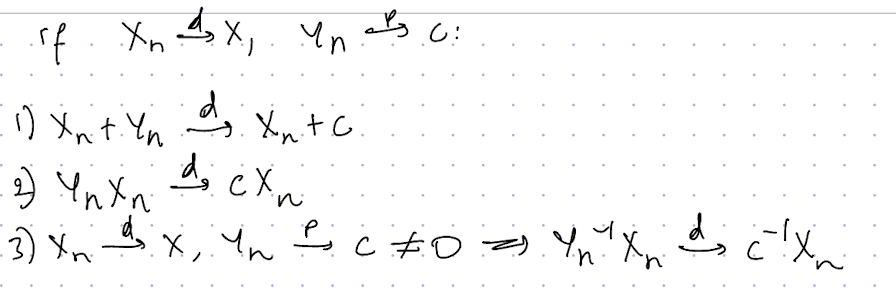 if Xₙ →ᵈ X, Yₙ →ᵖ c:
1) Xₙ + Yₙ →ᵈ Xₙ + c
2) YₙXₙ →ᵈ cXₙ
3) Xₙ →ᵈ X, Yₙ →ᵖ c ≠ 0 ⇒ Yₙ⁻¹Xₙ →ᵈ c⁻¹Xₙ